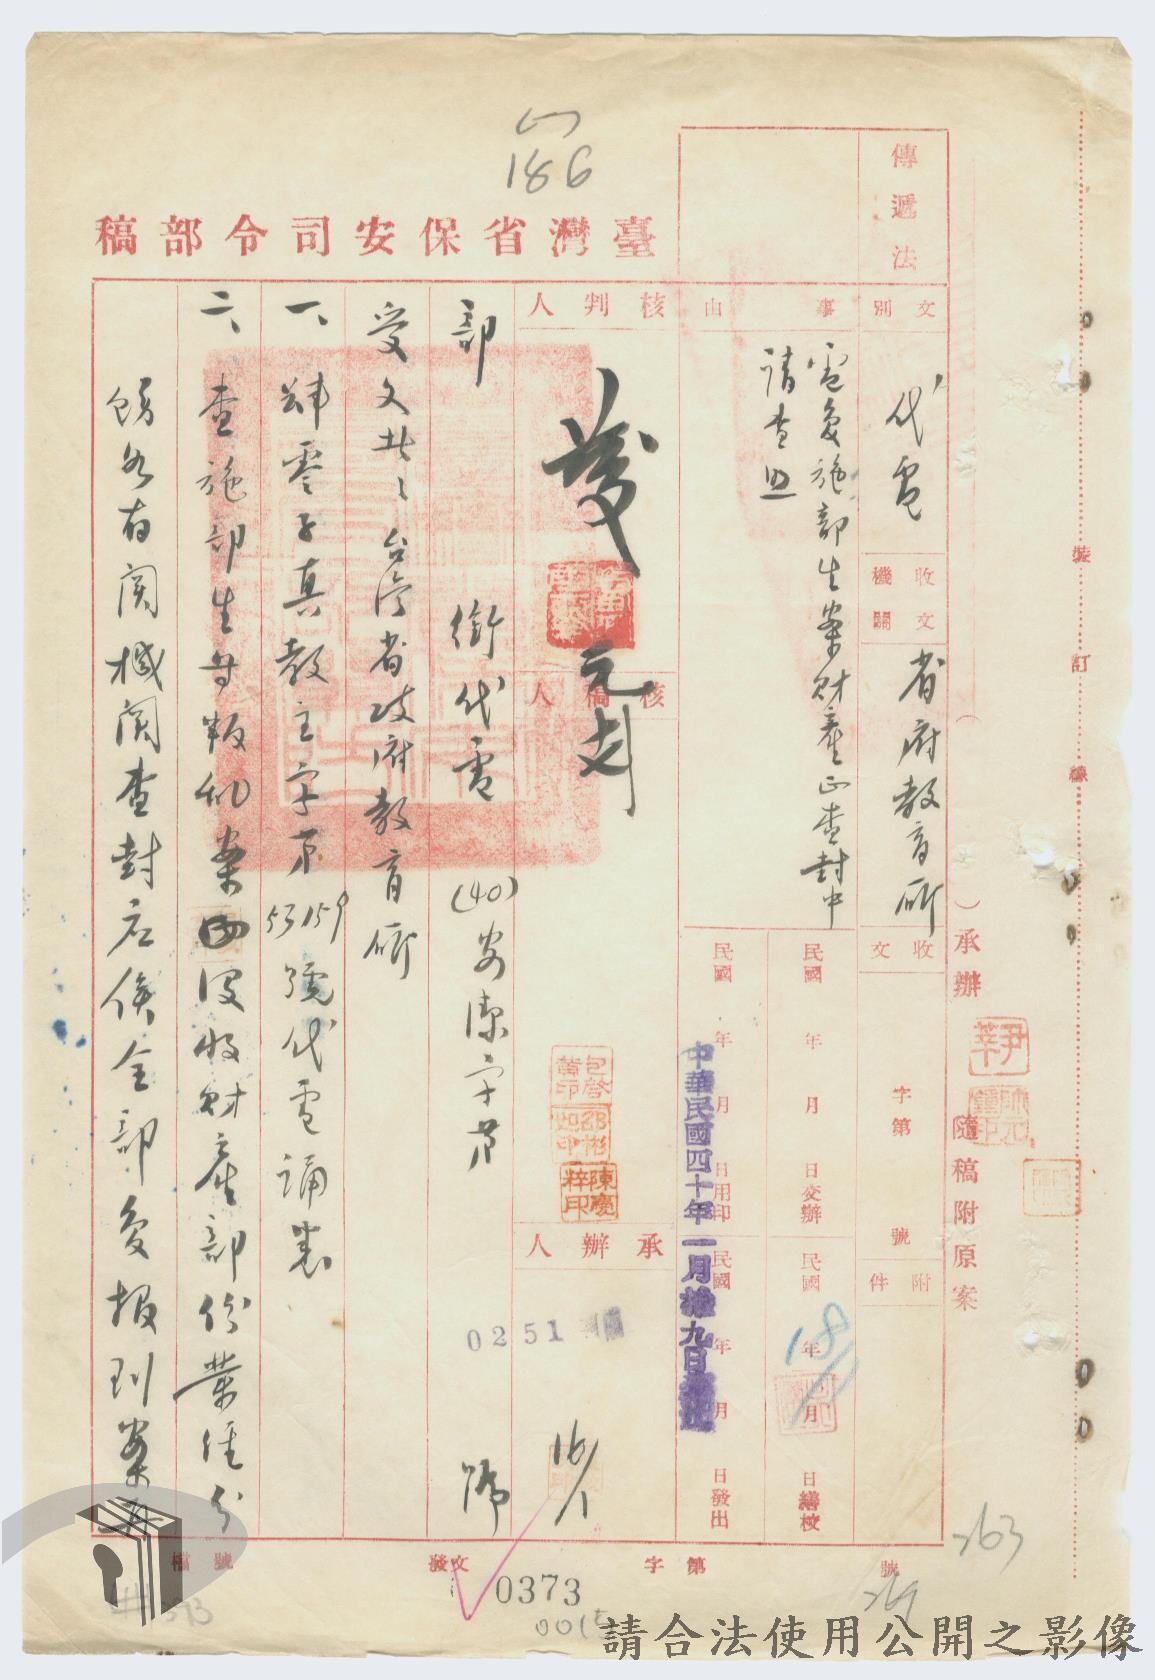 186
臺灣省保安司令部稿
傳遞法
文別
代電
收文機關
省府教育廳
收文
字第
號
附件
事由
電復施部生案財產正查封中
請查照
民國 年 月 日交辦
民國 年 月 日繕校
民國 年 月 日用印
民國 年 月 日發出
中華民國四十年一月拾九日
18/1
核判人
發
核稿人
承辦人
包啓黃印
邵彬如印
陳慶粹印
0251
16/1
部 銜代電 (40)安潔字第 號
受文者：台灣省政府教育廳
一、肆零子真教主字第53159號代電誦悉
二、查施部生等叛亂案內沒收財產部份業經分
飭各有關機關查封在俟全部復報到案再
檔號
發文
字第
號
0373
0015
263
承辦
隨稿附原案
裝訂線
請合法使用公開之影像